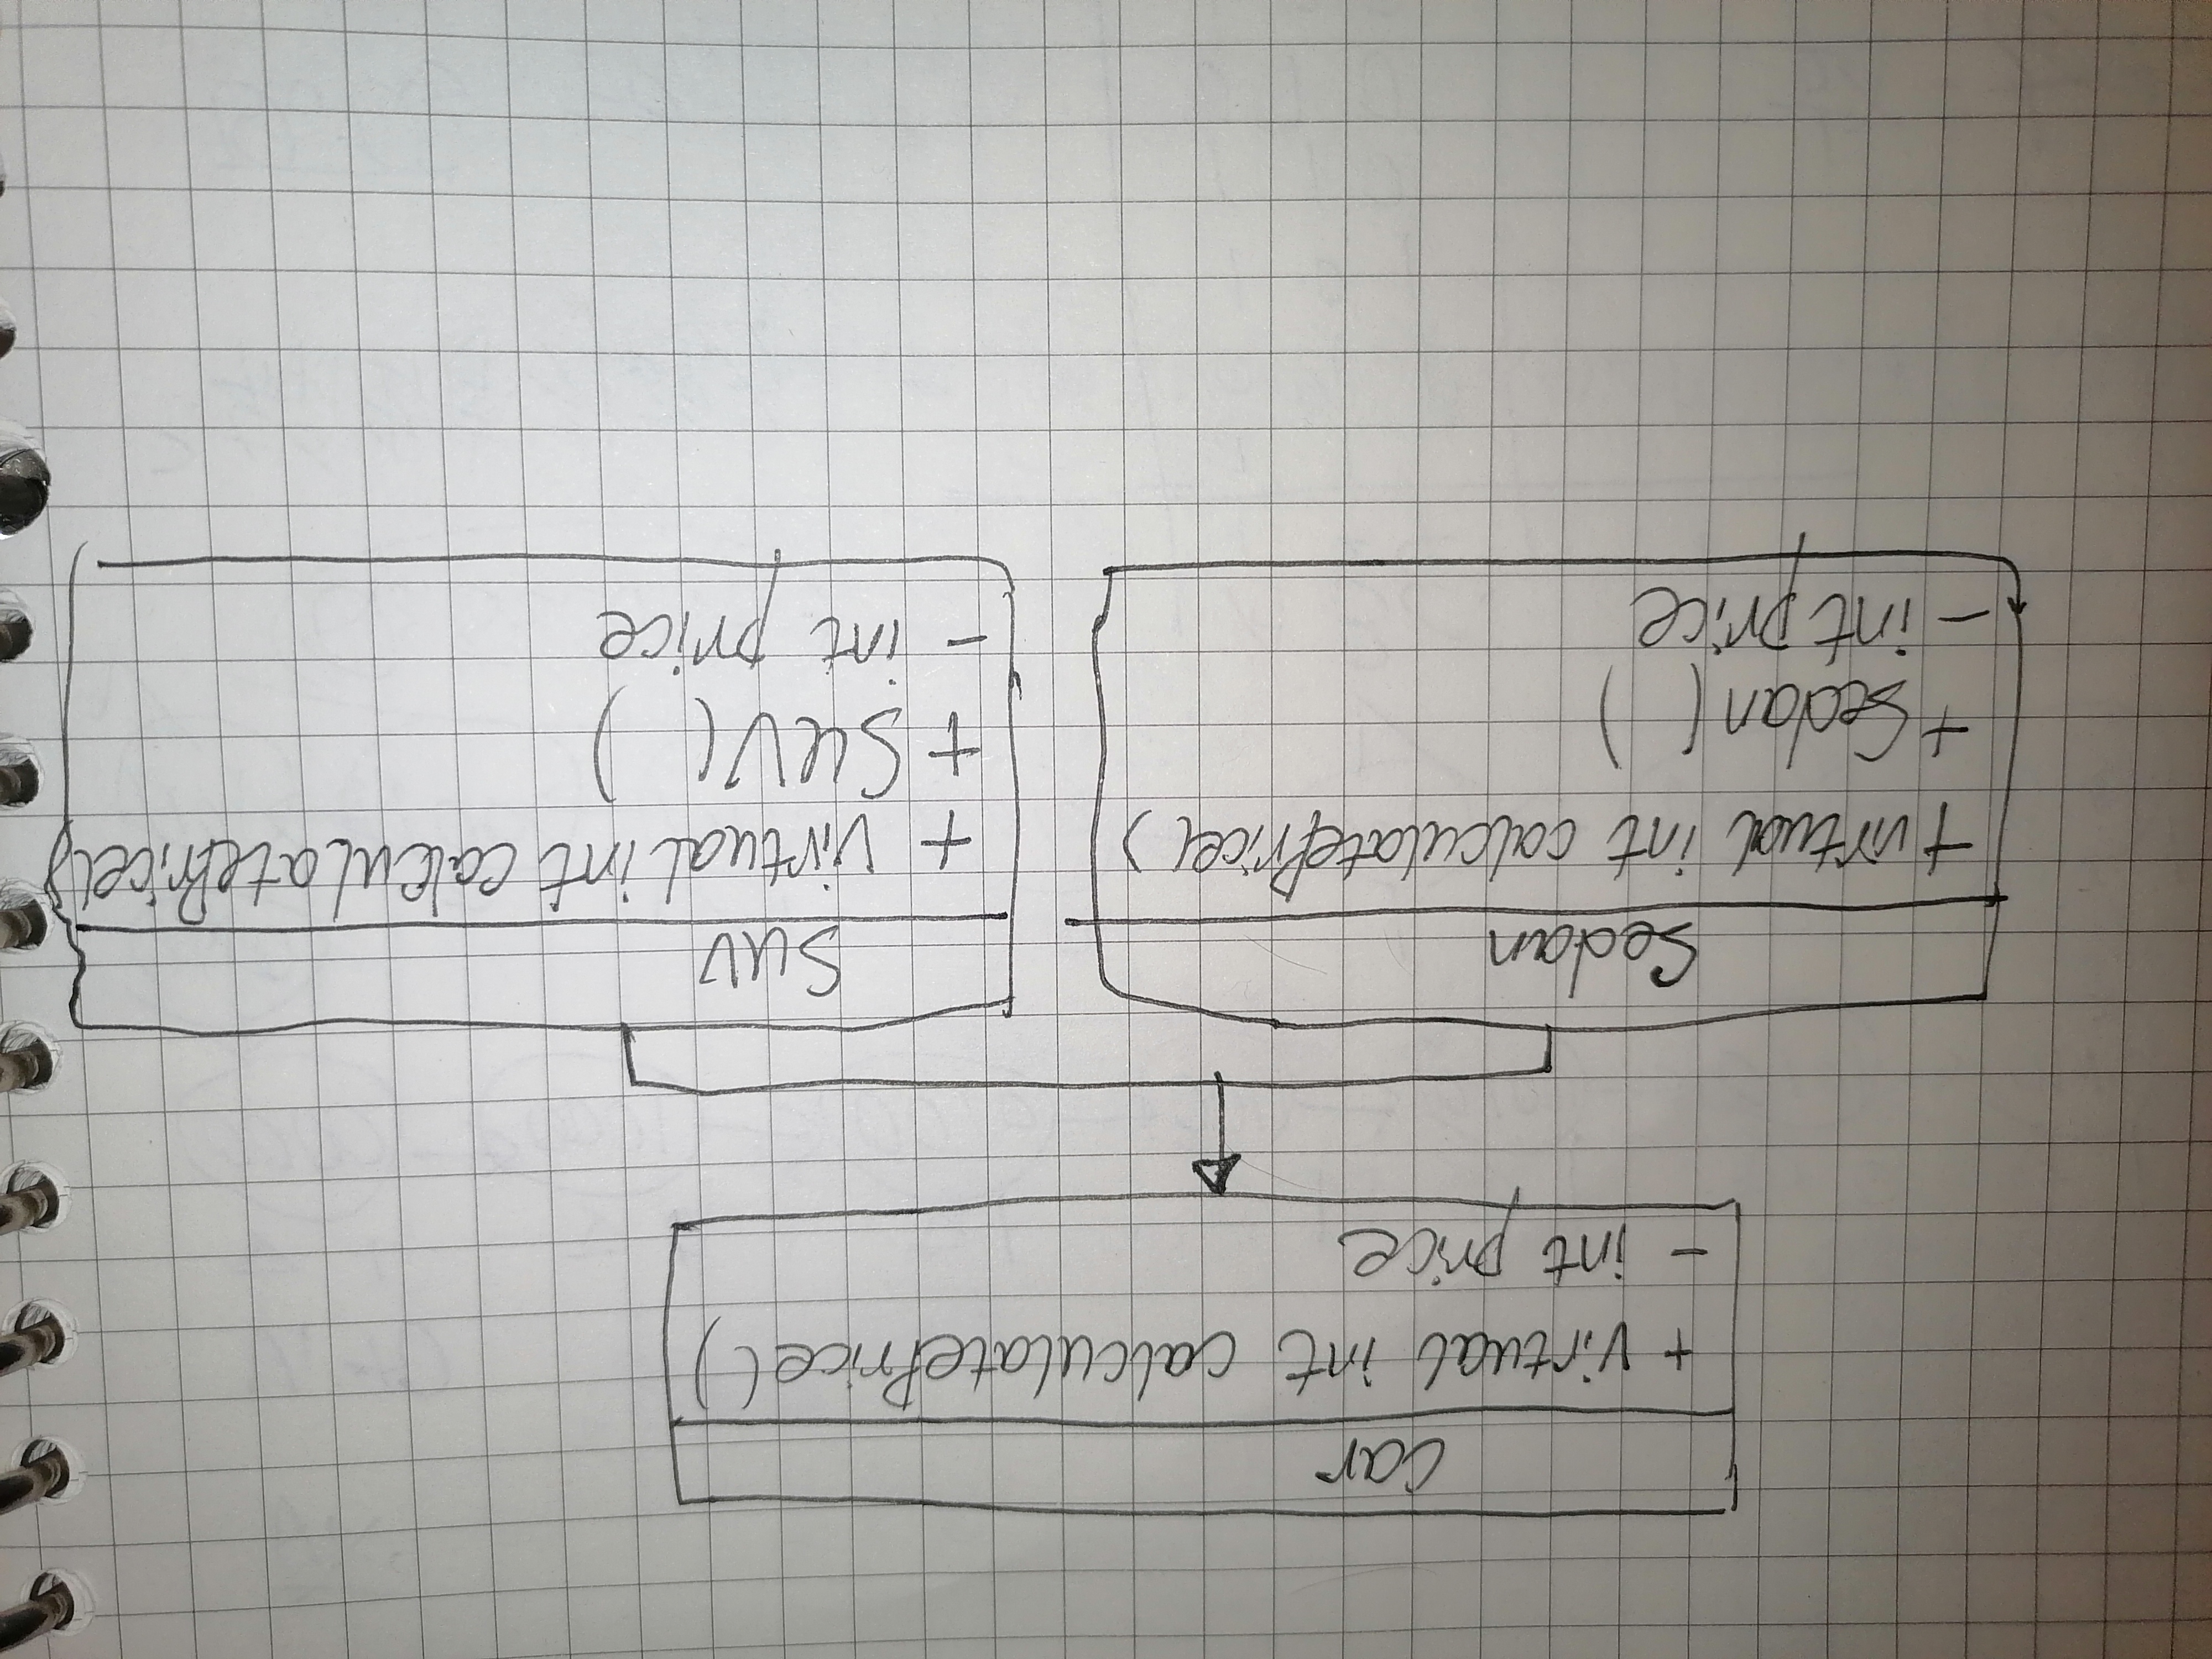 Car
+ virtual int calculatePrice()
- int price
Sedan
+ virtual int calculatePrice()
+ Sedan( )
- int price
SUV
+ virtual int calculatePrice()
+ SUV( )
- int price